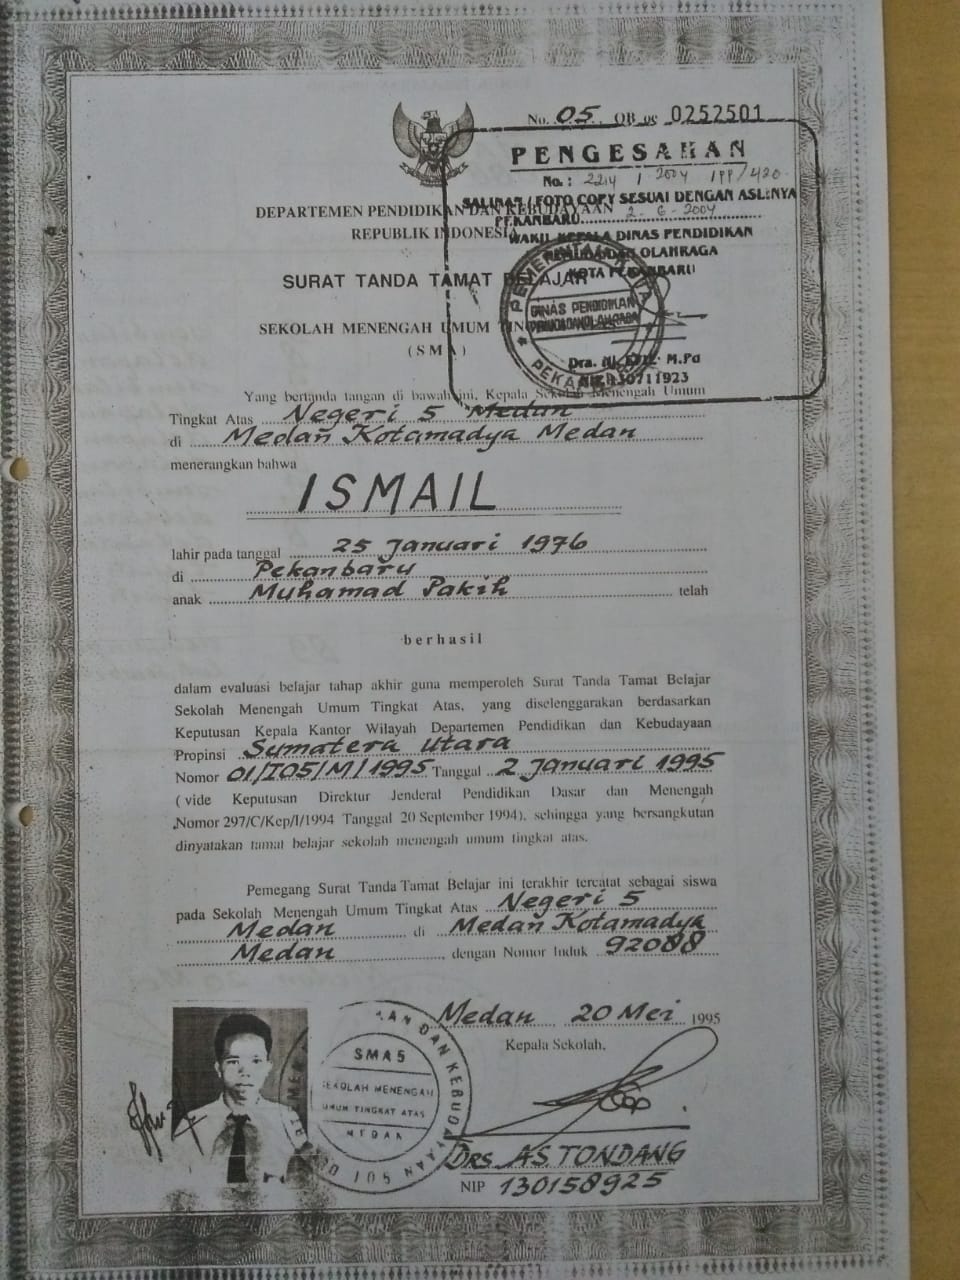 No. 05. OB oc 0252501
PENGESAHAN
No. : 2214 / 2004 / PP / 420
SALINAN / FOTO COPY SESUAI DENGAN ASLINYA
PEKANBARU 2-6-2004
WAKIL KEPALA DINAS PENDIDIKAN
PEMUDA DAN OLAHRAGA
KOTA PEKANBARU
PEMERINTAH KOTA
DINAS PENDIDIKAN
PEMUDA DAN OLAHRAGA
PEKANBARU
M.Pd
NIP. 130711923
DEPARTEMEN PENDIDIKAN DAN KEBUDAYAAN
REPUBLIK INDONESIA
SURAT TANDA TAMAT BELAJAR
SEKOLAH MENENGAH UMUM TINGKAT
( SMA )
Yang bertanda tangan di bawah ini, Kepala Sekolah Menengah Umum
Tingkat Atas Negeri 5 Medan
di Medan Kotamadya Medan
menerangkan bahwa
ISMAIL
lahir pada tanggal 25 Januari 1976
di Pekanbaru
anak Muhamad Pakih telah
berhasil
dalam evaluasi belajar tahap akhir guna memperoleh Surat Tanda Tamat Belajar
Sekolah Menengah Umum Tingkat Atas, yang diselenggarakan berdasarkan
Keputusan Kepala Kantor Wilayah Departemen Pendidikan dan Kebudayaan
Propinsi Sumatera Utara
Nomor 01/I05/M/1995 Tanggal 2 Januari 1995
( vide Keputusan Direktur Jenderal Pendidikan Dasar dan Menengah
Nomor 297/C/Kep/I/1994 Tanggal 20 September 1994), sehingga yang bersangkutan
dinyatakan tamat belajar sekolah menengah umum tingkat atas.
Pemegang Surat Tanda Tamat Belajar ini terakhir tercatat sebagai siswa
pada Sekolah Menengah Umum Tingkat Atas Negeri 5
Medan di Medan Kotamadya
Medan, dengan Nomor Induk 92088
Medan 20 Mei 1995
Kepala Sekolah,
DAN KEBUDAYAAN
SMA 5
SEKOLAH MENENGAH
UMUM TINGKAT ATAS
MEDAN
DRS. AS. TONDANG
NIP 130158925